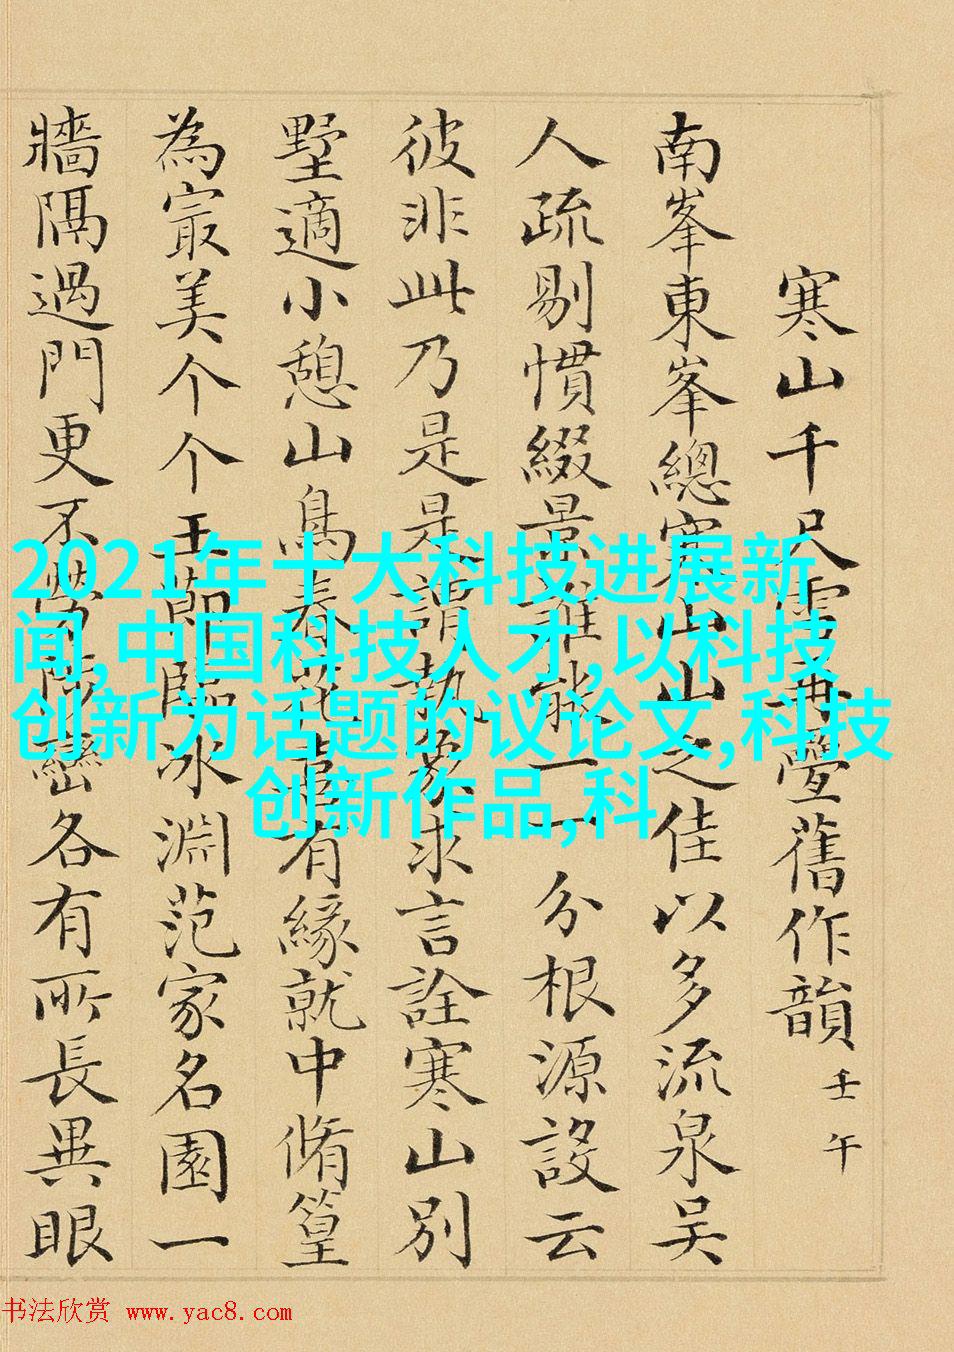 寒山千尺雪再疊舊作韻 壬午
南峯東峯總寒山山之佳以多流泉吴
人疏剔慣綴景誰能一一分根源設云
彼非此乃是是謂執象求言詮寒山別
墅適小憩山鳥春花有緣就中脩篁
為㝡美个个玉節臨冰淵范家名園一
牆隔過門更不勞陟巒各有所長異眼
2021年十大科技进展新
闻,中国科技人才,以科技
创新为话题的议论文,科技
创新作品,科
书法欣赏 www.yac8.com